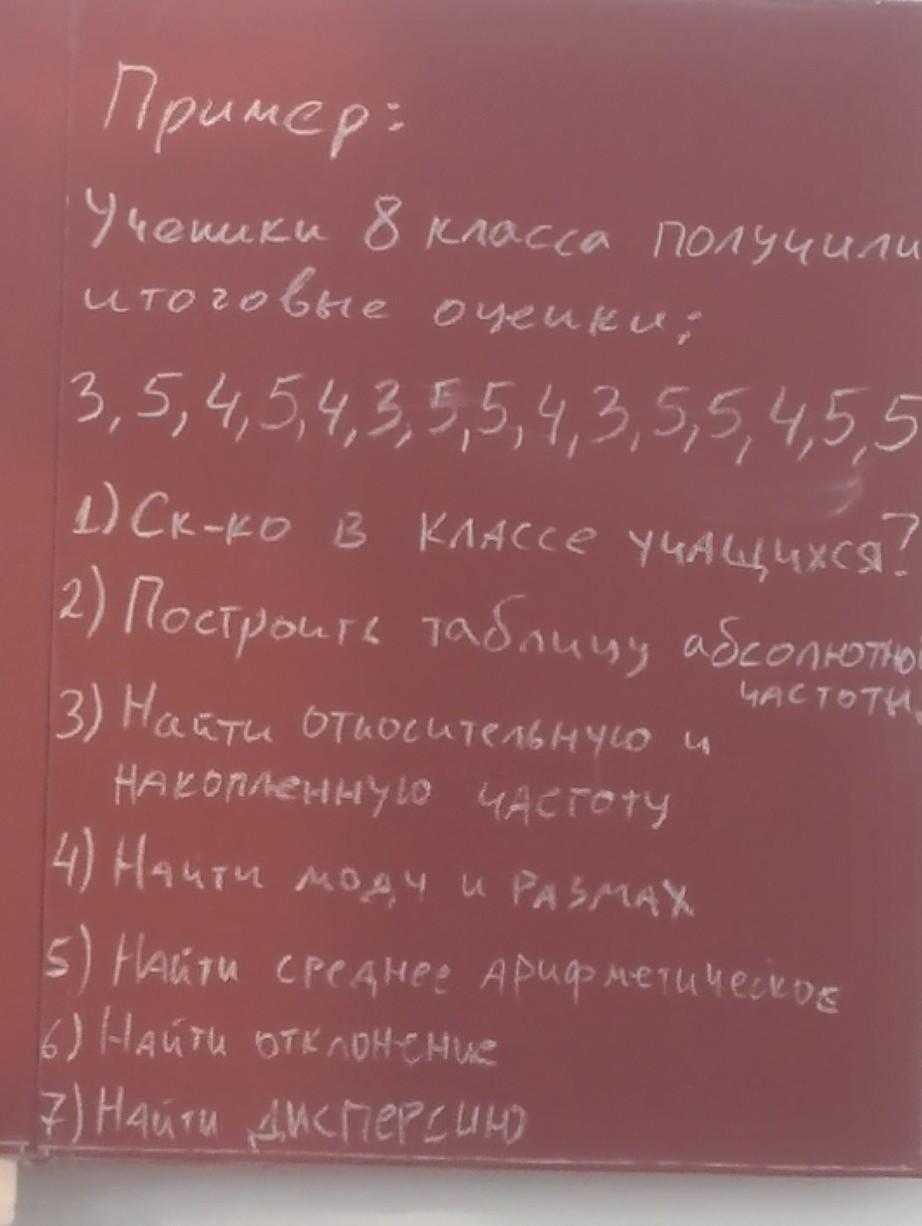 Пример:
Ученики 8 класса получили
итоговые оценки:
3, 5, 4, 5, 4, 3, 5, 5, 4, 3, 5, 5, 4, 5, 5
1) Ск-ко в классе учащихся?
2) Построить таблицу абсолютной
частоты
3) Найти относительную и
накопленную частоту
4) Найти моду и размах
5) Найти среднее арифметическое
6) Найти отклонение
7) Найти дисперсию